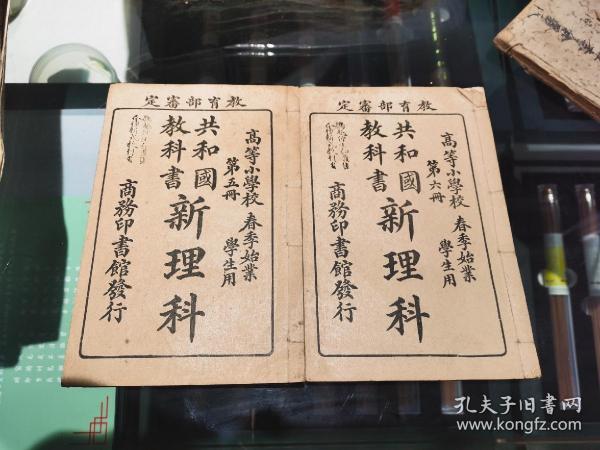 教育部審定
高等小學校 春季始業 學生用
第六冊
共和國
教科書
新理科
商務印書館發行
教育部審定
高等小學校 春季始業 學生用
第五冊
共和國
教科書
新理科
商務印書館發行
孔夫子旧书网
www.kongfz.com